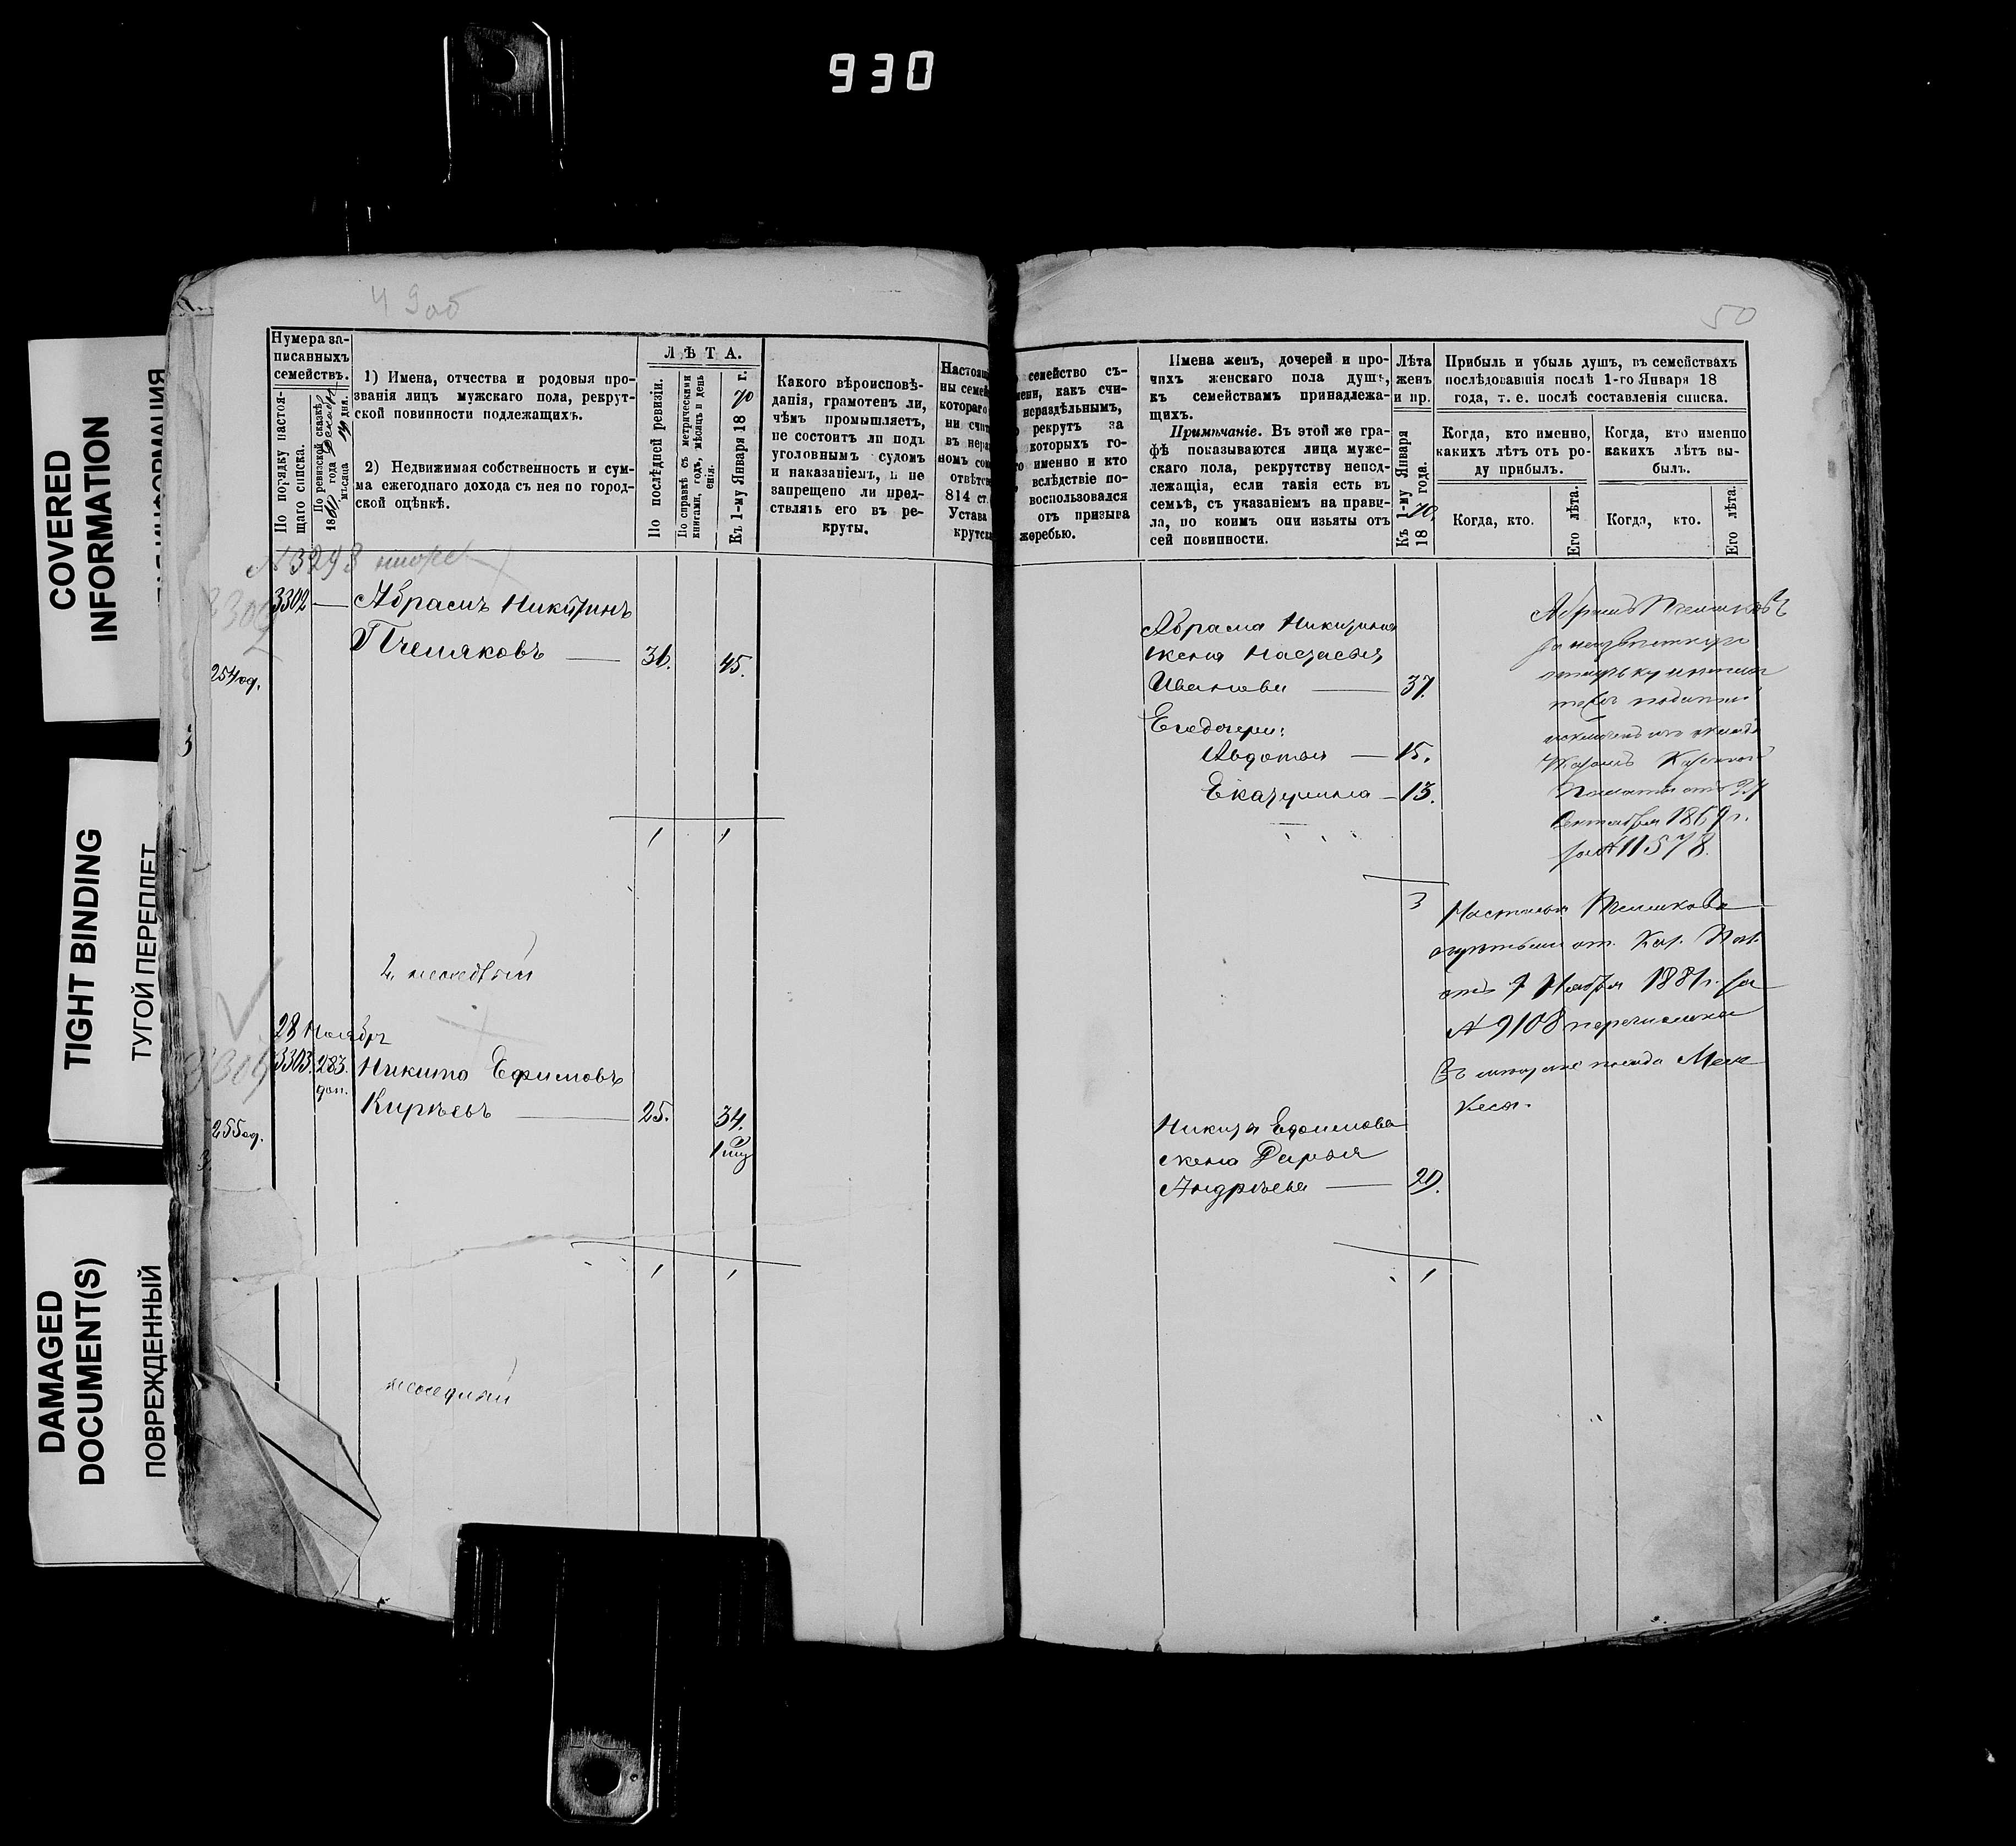 930
COVERED
INFORMATION
TIGHT BINDING
ТУГОЙ ПЕРЕПЛЕТ
DAMAGED
DOCUMENT(S)
ПОВРЕЖДЕННЫЙ
49об
Нумера за-
писанныхъ
семействъ.
По порядку настоя-
щаго списка.
По ревизской сказкѣ
18 года
мѣсяца 19 дня.
1) Имена, отчества и родовыя про-
званія лицъ мужскаго пола, рекрут-
ской повинности подлежащихъ.
2) Недвижимая собственность и сум-
ма ежегоднаго дохода съ нея по город-
ской оцѣнкѣ.
ЛѢТА.
По послѣдней ревизіи.
По справкѣ съ метрическими
книгами, годъ, мѣсяцъ и день
Къ 1-му Января 1870 г.
Какого вѣроисповѣ-
данія, грамотенъ ли,
чѣмъ промышляетъ,
не состоитъ ли подъ
уголовнымъ судомъ
и наказаніемъ, и не
запрещено ли пред-
ствлять его въ ре-
круты.
Настоящ
ны семей
котораго
ни счит
въ нераз
номъ сом
отвѣтсв
814 ст.
Устава
крутск
3302 — Абрамъ Никитинъ
Пчеляковъ — 36. 45.
254 од.
1 1
28 Ноябр
3303. 283. Никита Ефимовъ
доп.
Кирѣевъ — 25. 34.
255 од.
1 1
50
семейство съ-
мени, какъ счи-
нераздѣльнымъ,
рекрутъ за
которыхъ го-
именно и кто
вслѣдствіе по-
воспользовался
отъ призыва
жеребью.
Имена женъ, дочерей и про-
чихъ женскаго пола душъ,
къ семействамъ принадлежа-
щихъ.
Примѣчаніе. Въ этой же гра-
фѣ показываются лица муже-
скаго пола, рекрутству непод-
лежащія, если такія есть въ
семьѣ, съ указаніемъ на прави-
ла, по коимъ они изьяты отъ
сей повинности.
Лѣта
женъ
и пр.
Къ 1-му Января
1870 года.
Прибыль и убыль душъ, въ семействахъ
послѣдовавшія послѣ 1-го Января 18
года, т. е. послѣ составленія списка.
Когда, кто именно,
какихъ лѣтъ отъ ро-
ду прибылъ.
Когда, кто именно
какихъ лѣтъ вы-
былъ.
Когда, кто.
Его лѣта.
Когда, кто.
Его лѣта.
Абрама Никитина
жена Настасья
Иванова — 37.
Его дочери:
Авдотья — 15.
Екатерина — 13.
3
Абрамъ Пчеляковъ
Казен
Палаты отъ 24
Сентября 1869 г.
за № 11578.
Настасья Пчелякова
Каз. Пал.
отъ 7 Ноября 1881 г. за
№ 9108 перечислена
Никиты Ефимова
жена Дарья
Андрѣева — 29.
1